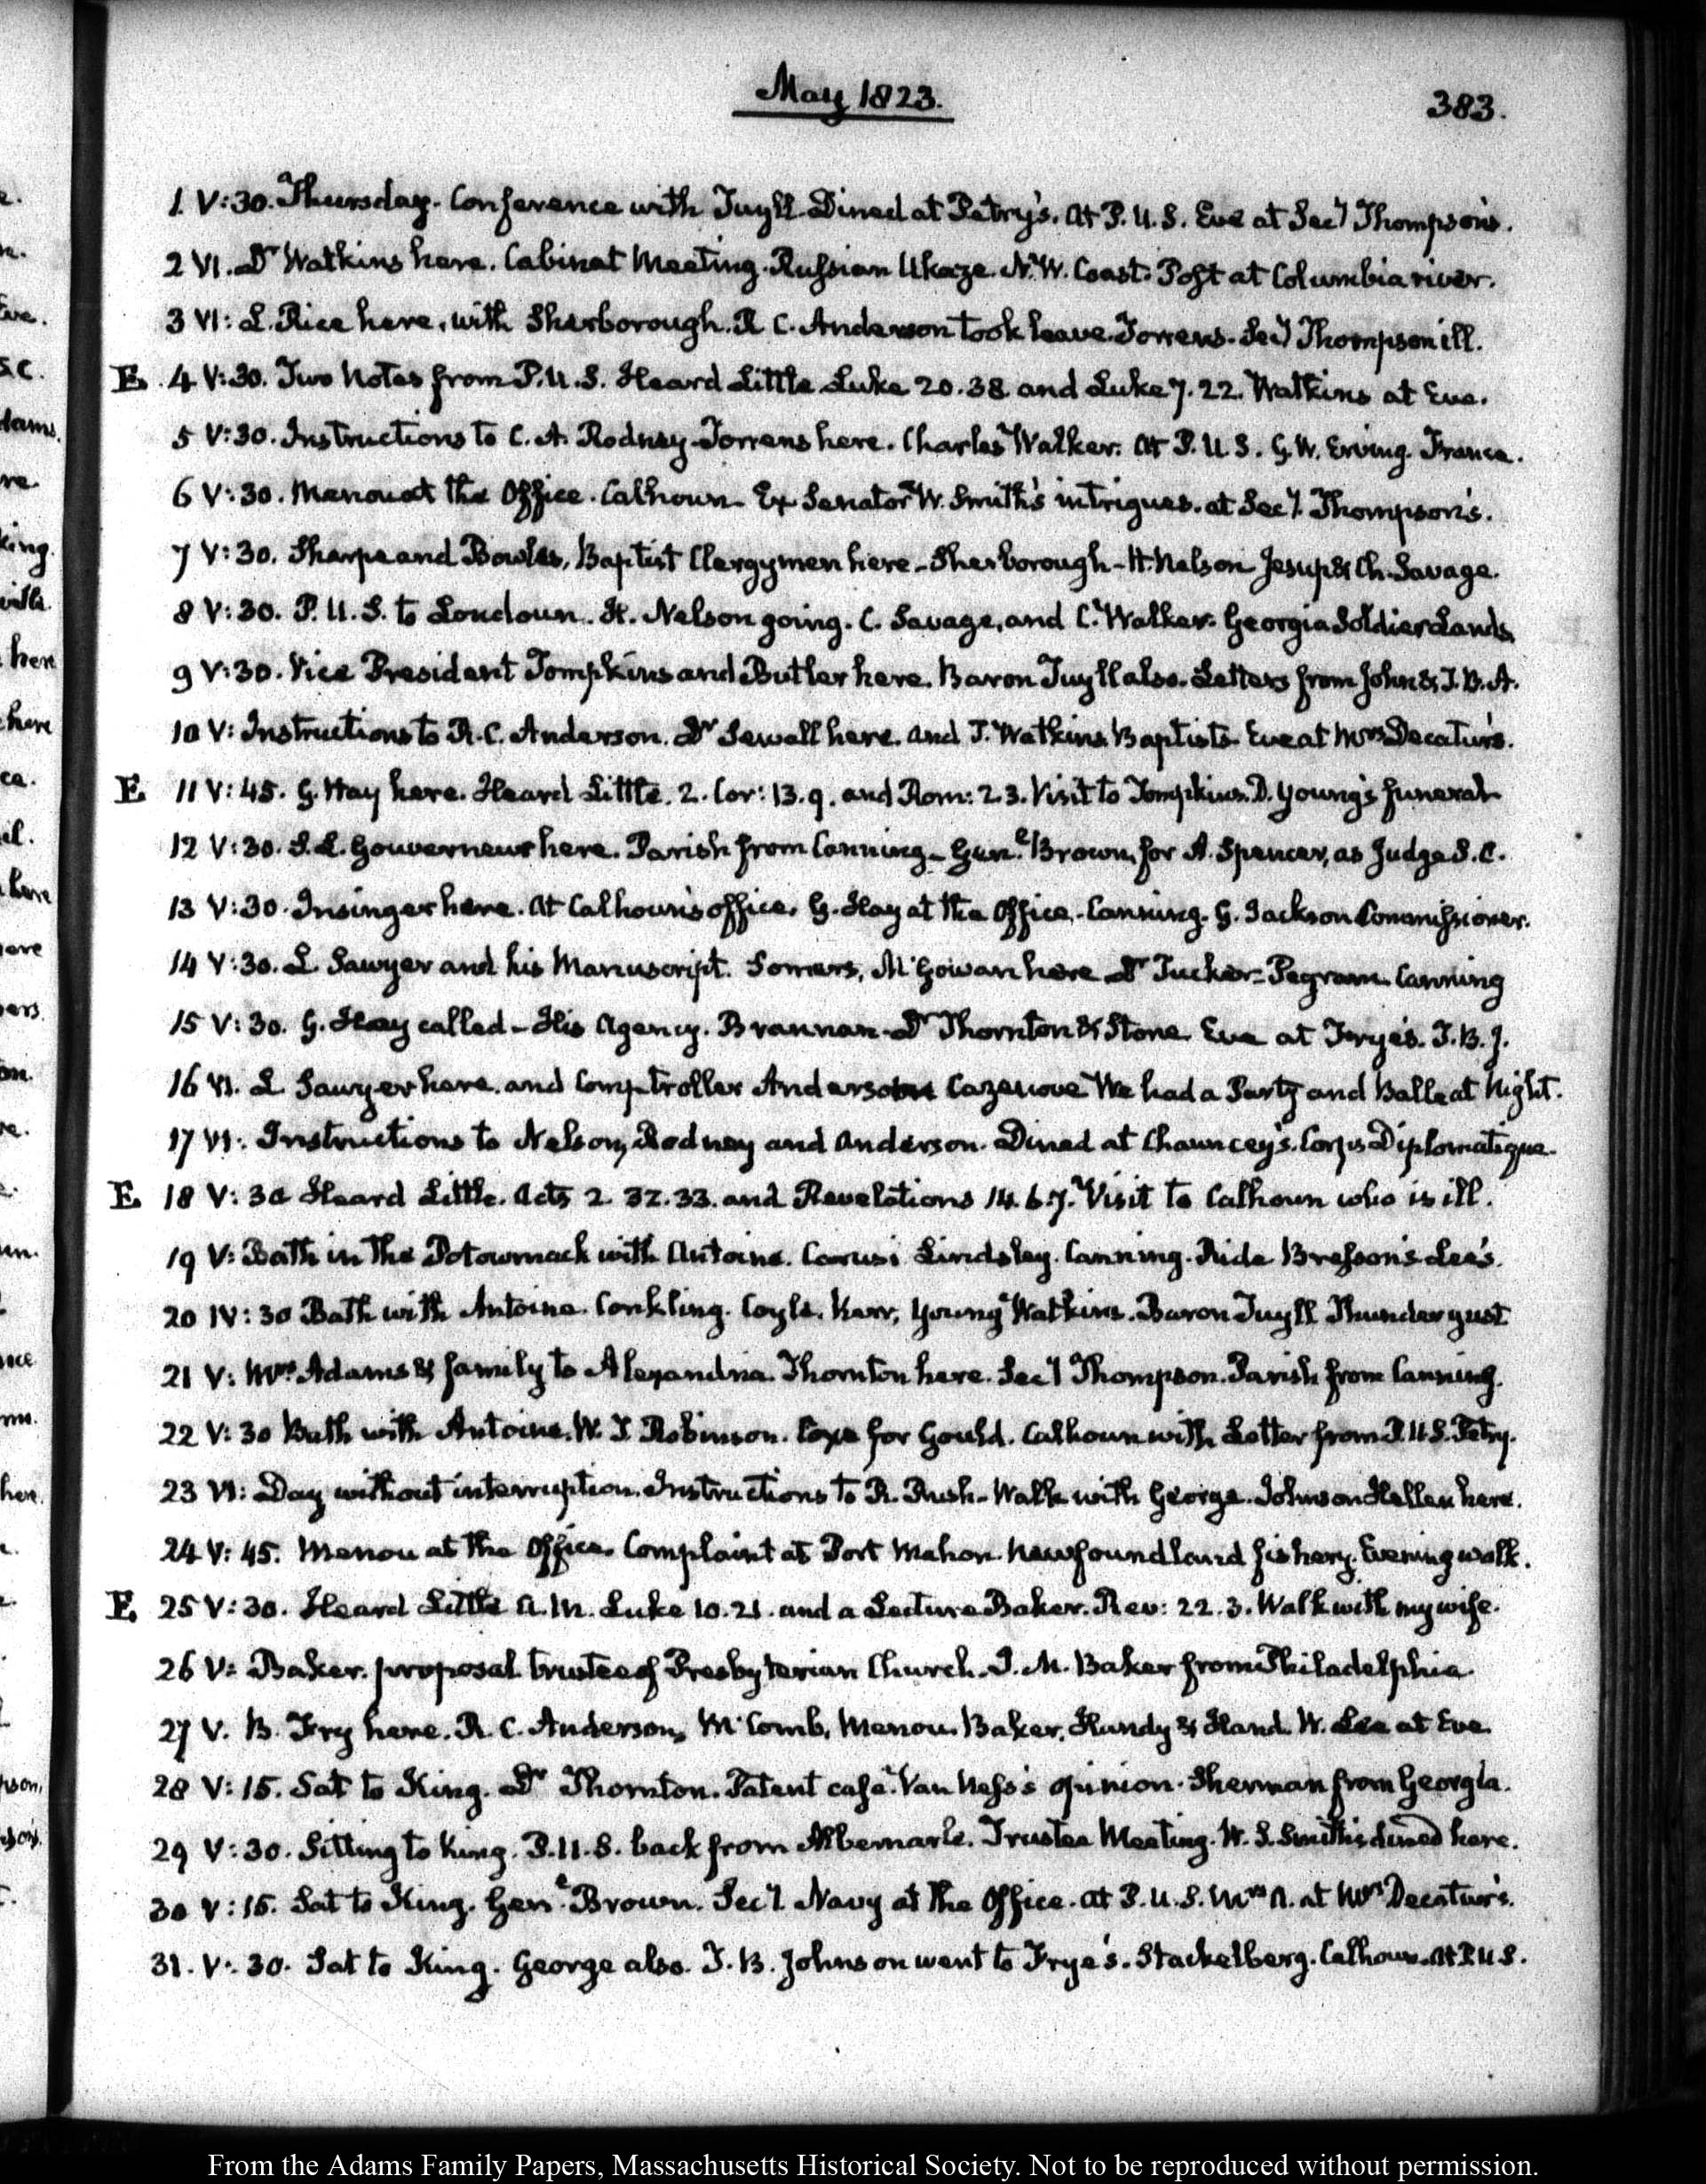 May 1823.
383.
1. V:30. Thursday. Conference with Tuyll. Dined at Petry's. At P.U.S. Eve at Secy Thompson's.
2 VI. Dr Watkins here. Cabinet Meeting. Russian Ukaze. N.W. Coast. Post at Columbia river.
3 VI: L. Rice here, with Sherborough. R. C. Anderson took leave. Torrens. Secy Thompson ill.
E 4 V:30. Two Notes from P.U.S. Heard Little Luke 20.38 and Luke 7.22. Watkins at Eve.
5 V:30. Instructions to C. A. Rodney. Torrens here. Charles Walker. At P.U.S. G. W. Erving. France.
6 V:30. Menou at the Office. Calhoun. Ex Senator W. Smith's intrigues. at Secy. Thompson's.
7 V:30. Sharpe and Bowles, Baptist Clergymen here - Sherborough - H. Nelson Jesup & Ch. Savage.
8 V:30. P.U.S. to Loudoun. H. Nelson going. C. Savage, and C. Walker. Georgia Soldier Lands.
9 V:30. Vice President Tompkins and Butler here. Baron Tuyll also. Letters from John & T.B.A.
10 V: Instructions to R. C. Anderson. Dr Sewall here. and T. Watkins. Baptists. Eve at Mrs Decatur's.
E 11 V:45. G. Hay here. Heard Little. 2. Cor: 13.9. and Rom: 2.3. Visit to Tompkins. D. Young's funeral
12 V:30. S. L. Gouverneur here. Parish from Canning - Genl. Brown, for A. Spencer, as Judge S.C.
13 V:30. Insinger here. At Calhoun's office. G. Hay at the Office. Canning. G. Jackson Commissioner.
14 V:30. L. Sawyer and his Manuscript. Somers, McGowan here Dr Tucker - Pegram. Canning
15 V:30. G. Hay called - His Agency. Brannan - Dr Thornton & Stone. Eve at Frye's. T.B.J.
16 VI. L. Sawyer here. and Comptroller Anderson Cazenove We had a Party and Balle at Night.
17 VI. Instructions to Nelson, Rodney and Anderson. Dined at Chauncey's. Corps Diplomatique.
E 18 V:30 Heard Little. Acts 2. 32.33. and Revelations 14.6.7. Visit to Calhoun who is ill.
19 V: Bath in the Potowmack with Antoine. Carusi. Lindsley. Canning. Ride Bresson's Lee's.
20 IV:30 Bath with Antoine. Conkling. Coyle. Karr, Young Watkins. Baron Tuyll Thunder gust
21 V: Mrs. Adams & family to Alexandria. Thornton here. Secy Thompson. Parish from Canning.
22 V:30 Bath with Antoine. W. T. Robinson. Coxe for Gould. Calhoun with Letter from P.U.S. Petry.
23 VI: Day without interruption. Instructions to R. Rush - Walk with George. Johnson Hellen here.
24 V:45. Menou at the Office. Complaint at Port Mahon. Newfoundland fishery. Evening walk.
E 25 V:30. Heard Little A.M. Luke 10.21. and a Lecture Baker. Rev: 22.3. Walk with my wife.
26 V: Baker. proposal trustee of Presbyterian Church. J. M. Baker from Philadelphia
27 V. B. Fry here. R. C. Anderson, McComb, Menou. Baker, Hundy & Hand. W. Lee at Eve
28 V:15. Sat to King. Dr Thornton. Patent case. Van Ness's opinion. Sherman from Georgia.
29 V:30. Sitting to King. P.U.S. back from Albemarle. Trustee Meeting. W. S. Smiths dined here.
30 V:15. Sat to King. Genl. Brown. Secy. Navy at the Office. at P.U.S. Mrs A. at Mrs Decatur's.
31. V:30. Sat to King. George also. T. B. Johnson went to Frye's. Stackelberg. Calhoun. At P.U.S.
From the Adams Family Papers, Massachusetts Historical Society. Not to be reproduced without permission.